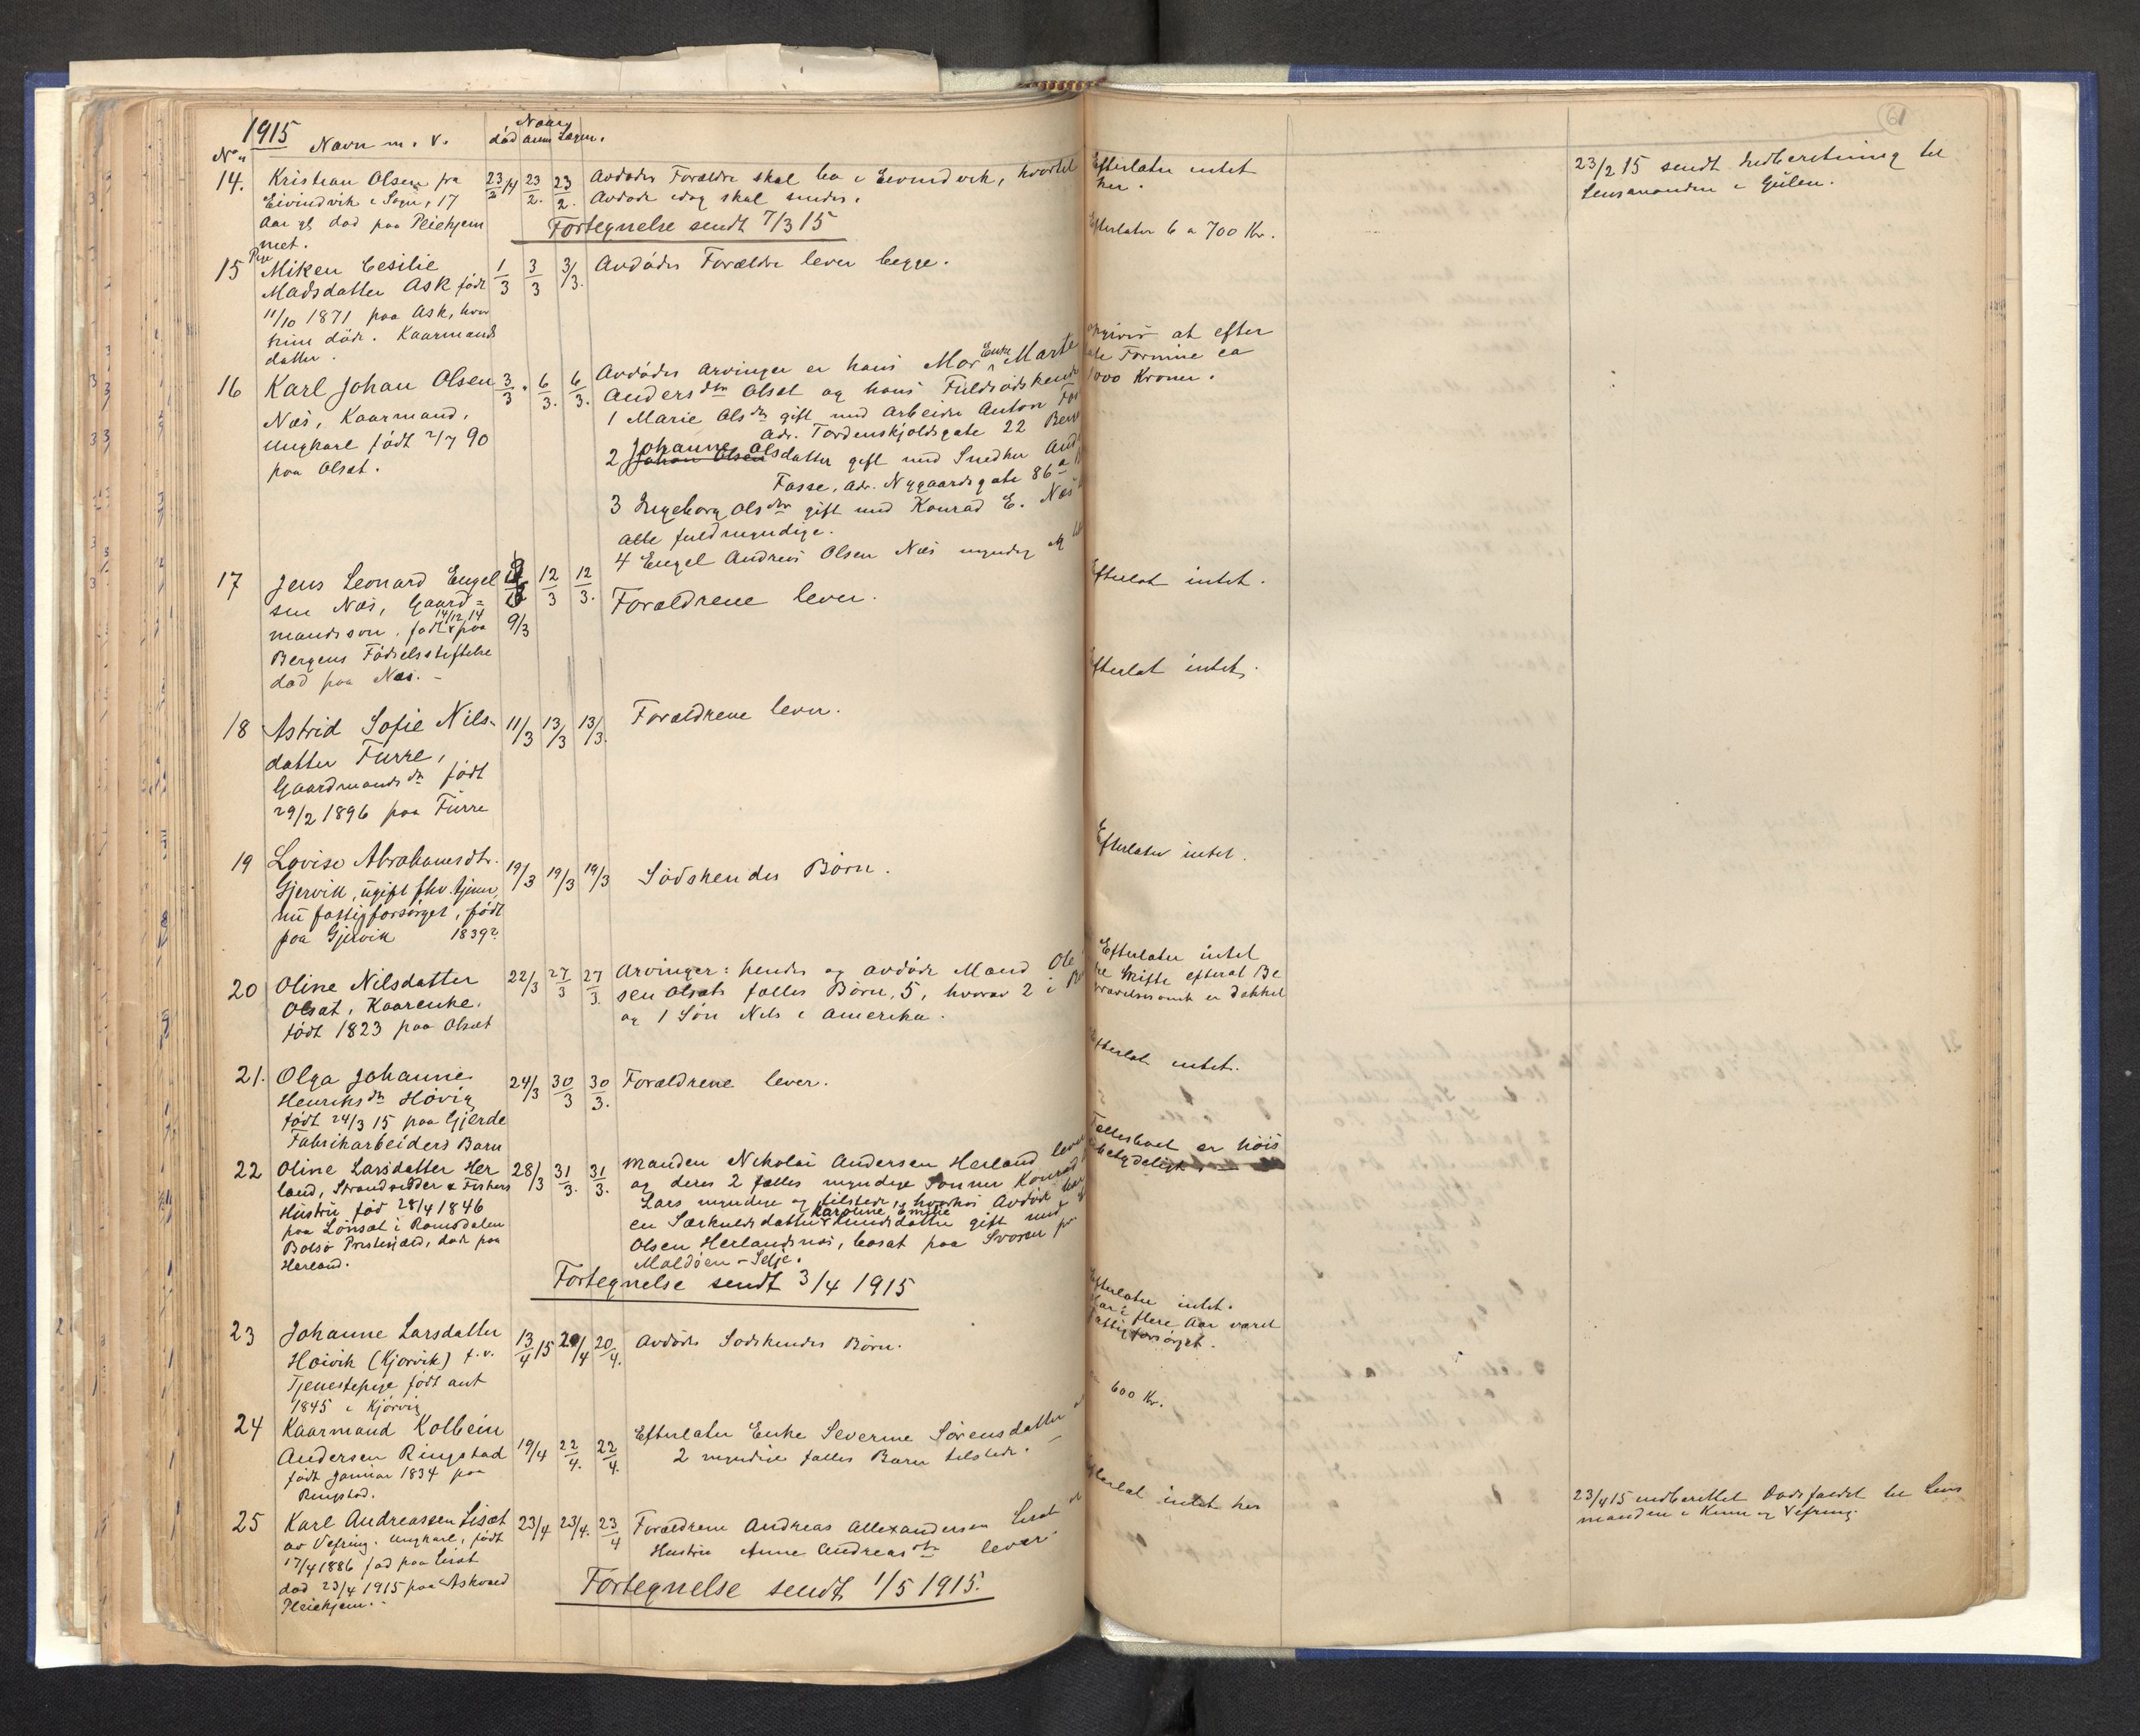 1915
No. Navn m. v. død anm Lagm. Naar
14. Kristian Olsen fra 23/2 14 23/2. 23/2. Avdødes Forældre skal bo i Eivindvik, hvortil
Eivindvik i Sogn, 17 Avdøde idag skal sendes.
Aar gl. død paa Pleiehjem
met. Fortegnelse sendt 7/3 15
15 Pige Miken Cesilie 1/3 3/3 3/3. Avdødes Forældre lever begge.
Madsdatter Ask født
11/10 1871 paa Ask, hvor
hun døde. Kaarmands
datter.
16 Karl Johan Olsen 3/3. 6/3. 6/3. Avdødes Arvinger er hans Mor Enke Marte
Næs, Kaarmand, Andersdtr Olset og hans Fuldsødskende
Ungkarl født 2/7 90 1 Marie Olsdtr gift med Arbeider Anton
paa Olset. Adr. Tordenskjoldsgate 22
2 Johan Olsen Johanne Olsdatter gift med Snedker
Fasse, Adr. Nygaardsgate 86a
3 Ingeborg Olsdtr gift med Konrad E. Næs
alle fuldmyndige.
4 Engel Andreas Olsen Næs myndig og
17 Jens Leonard Engel 12/3 12/3.
sen Næs, Gaard= Forældrene lever.
mandssøn. født 14/12 14 paa 9/3
Bergens Fødselsstiftelse
død paa Næs. –
18 Astrid Sofie Nils- 11/3 13/3 13/3. Forældrene lever.
datter Furre,
Gaardmandsdtr født
29/2 1896 paa Furre
19 Lovise Abrahamsdtr. 19/3 19/3 19/3 Sødskendes Børn.
Gjervik, ugift fhv. tjener,
nu fattigforsørget, født
paa Gjervik 1839?
20 Oline Nilsdatter 22/3 27/3 27/3. Arvinger: hendes og avdøde Mand Ole
Olsæt, Kaarenke. sen Olsets fælles Børn, 5, hvorav 2 i
født 1823 paa Olsæt og 1 Søn Nils i Amerika.
21. Olga Johanne 24/3 30/3 30/3. Forældrene lever.
Henriksdtr Høvig
født 24/3 15 paa Gjerde
Fabrikarbeiders Barn
22 Oline Larsdatter Her 28/3 31/3. 31/3. Manden Nikolai Andersen Herland lever
land, Strandsidder & Fiskers og deres 2 fælles myndige Sønner Konrad
Hustru fød 28/4 1846 Lars myndige og tilstede, hvorhos Avdøde har
paa Lønset i Romsdalen en Særkuldsdatter Karoline Emilie Knudsdatter gift med
Bolsø Præstegjæld, død paa Olsen Herlandsnæs, bosat paa
Herland. Maldøen – Selje.
Fortegnelse sendt 3/4 1915
23 Johanne Larsdatter 13/4 15 20/4 20/4. Avdødes Sødskendes Børn.
Høivik (Kjørvik) f.v.
Tjenestepige født ant
1845 i Kjørvig
24 Kaarmand Kolbein 19/4 22/4. 22/4. Efterlater Enke Severine Sørensdatter
Andersen Ringstad 2 myndige fælles Barn tilstede. –
født Januar 1834 paa
Ringstad.
25 Karl Andreassen Lisæt 23/4 23/4. 23/4 Forældrene Andreas Allexandersen Lisæt
av Vefring. Ungkarl, født Hustru Anne Andreasdtr lever.
17/4 1886 fød paa Lisæt
død 23/4 1915 paa Askvoll
Pleiehjem. Fortegnelse sendt 1/5 1915.
61
Efterlater intet
her.
23/2 15 sendt Indberetning til
Lensmanden i Gulen.
Efterlater 6 a 700 Kr.
opgives at efter
late Formue ca
1000 Kroner.
Efterlot intet.
Efterlot intet.
Efterlater intet.
Efterlater intet
Skifte efterat Be
er dækket
Efterlot intet.
Fællesboet er høis
ubetydelig.
Efterlater intet.
Har i flere Aar været
fattigforsørget.
600 Kr.
Efterlot intet her
23/4 15 indberettet Dødsfaldet til Lens
manden i Kinn og Vefring.